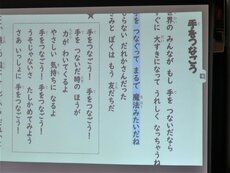 手をつなごう
世界の みんなが もし 手を つないだなら
すぐに 大すきになって うれしく なっちゃうね
手を つなぐって まるで 魔法みたいだね
らない だれかさんだった
みと ぼくは もう 友だちだ
手をつなごう! 手をつなごう!
手を つないだ時の ほうが
力が わいてくるよ
やさしい 気持ちに なるよ
手をつなごう! 手をつなごう!
うそじゃないさ たしかめてみよう
さあ いっしょに 手をつなごう!